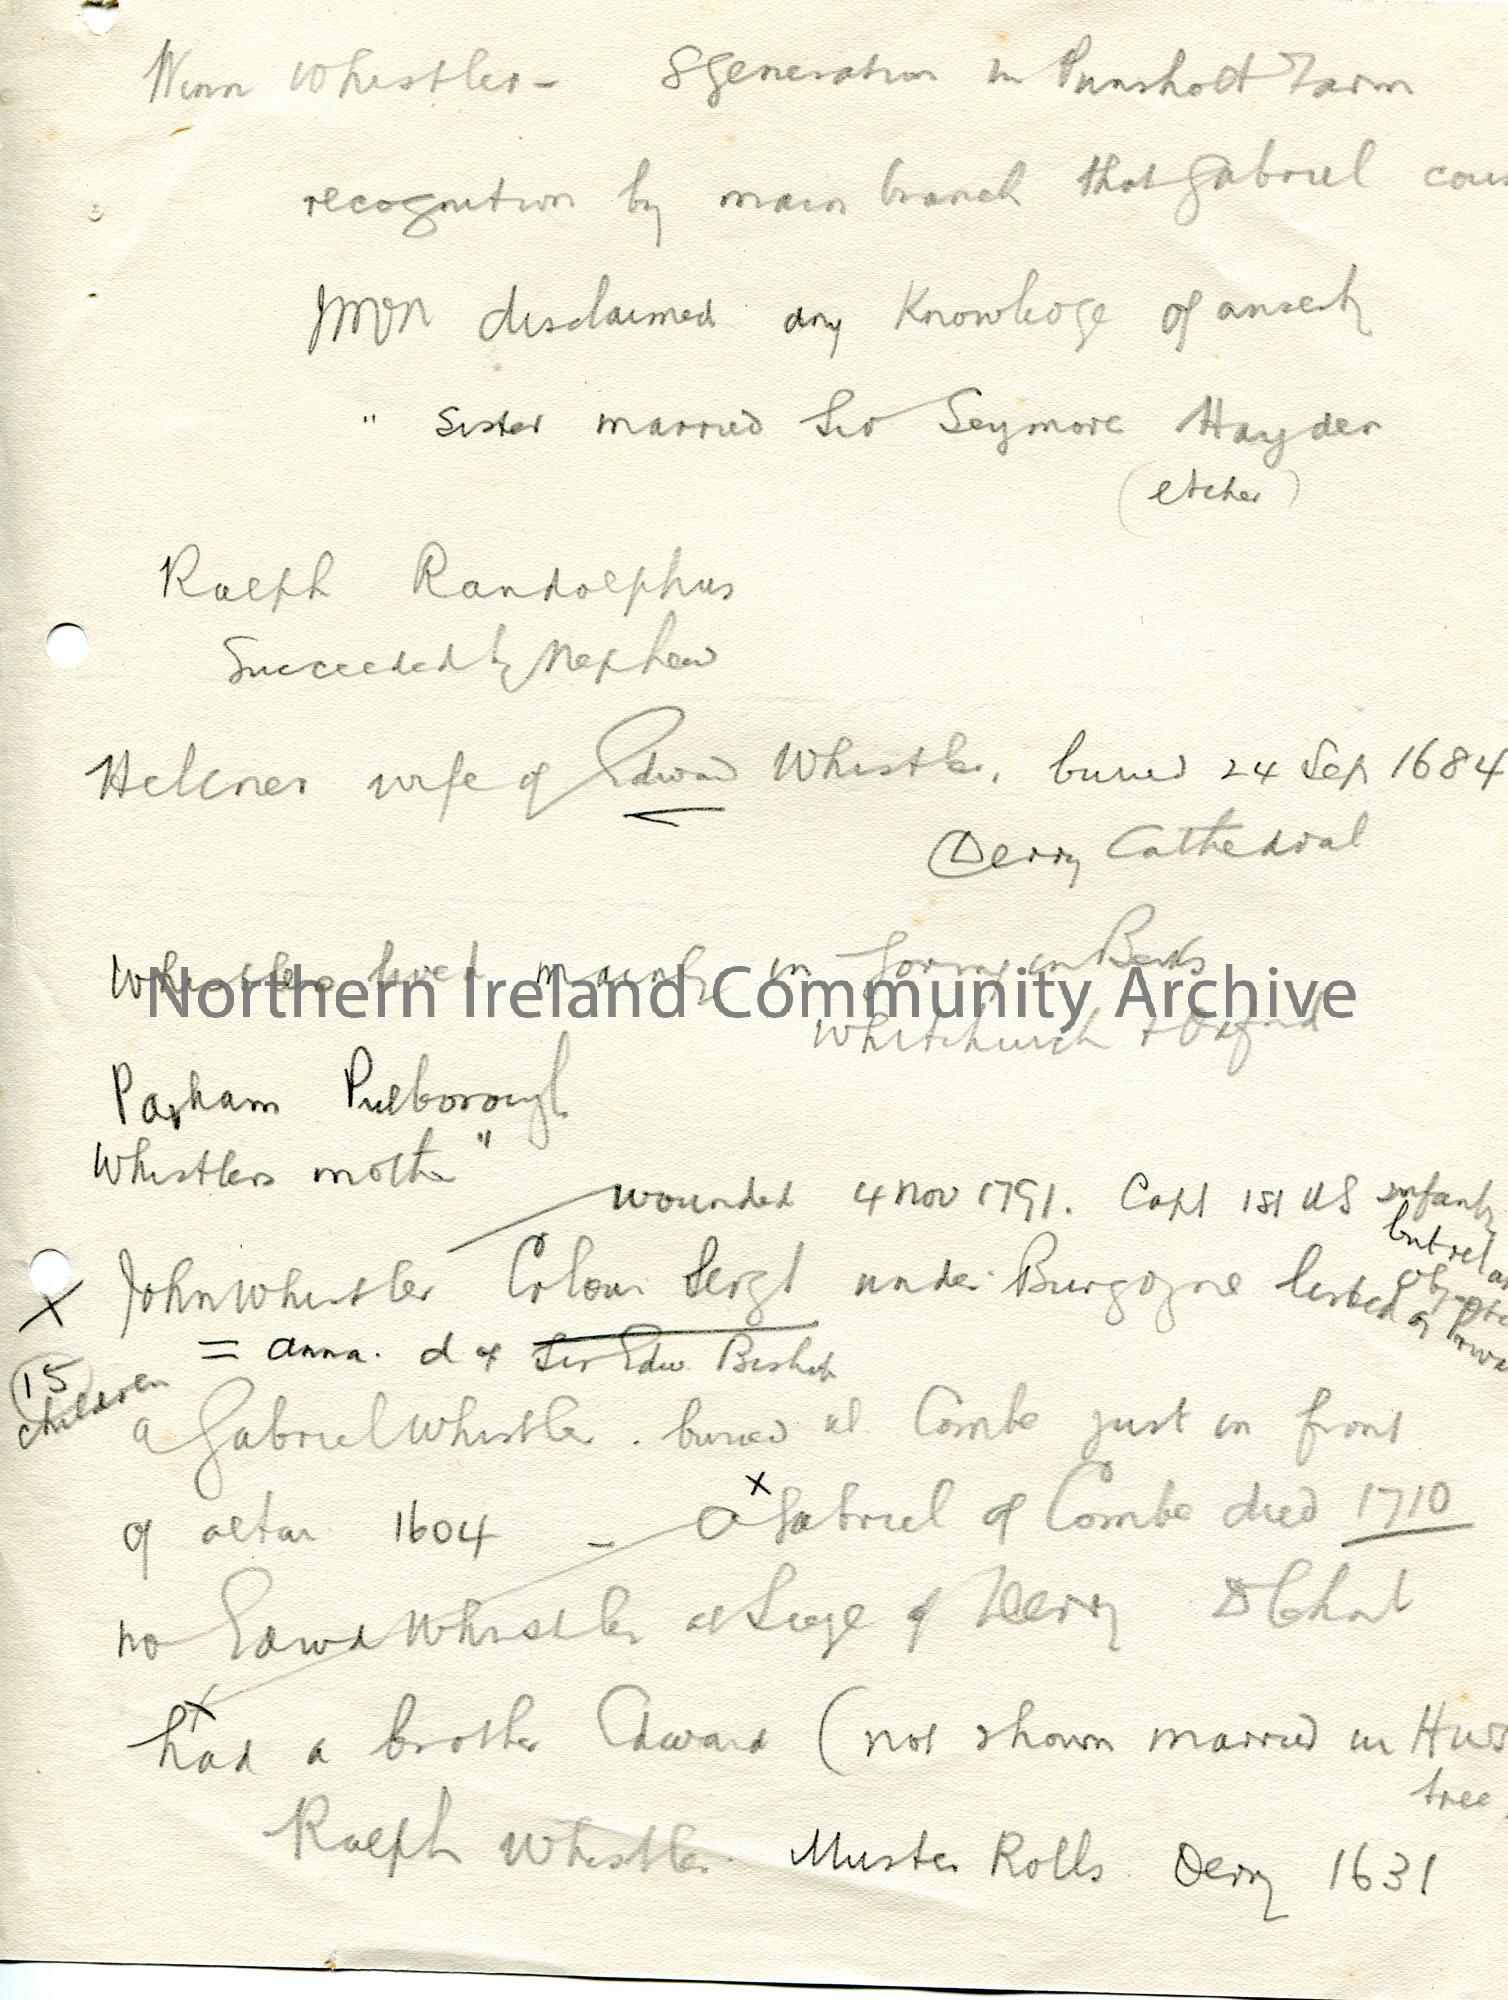 Winn Whistler - 8 generation in Punsholt Farm
recognition by main branch that Gabriel cous
disclaimed any Knowledge of
" Sister married Sir Seymore Hayden
(etcher)
Ralph Randolphus
Succeeded by Nephew
wife of Edward Whistler, buried 24 Sep 1684
Derry Cathedral
Whistlers lived mainly in Goring in Berks
Northern Ireland Community Archive
Whitchurch + Oxford
Parham Pulborough
Whistlers mother "
wounded 4 Nov 1791. Capt 1st US infantry
but
X John Whistler Colour Sergt under Burgoyne
= Anna. d of Sir Edw. Bishop
15
children
a Gabriel Whistler. buried at Combe just in front
of altar 1604 - a x Gabriel of Combe died 1710
no Edwd Whistler at Siege of Derry
x
had a brother Edward (not shown married in
tree
Ralph Whistler. Muster Rolls. Derry 1631